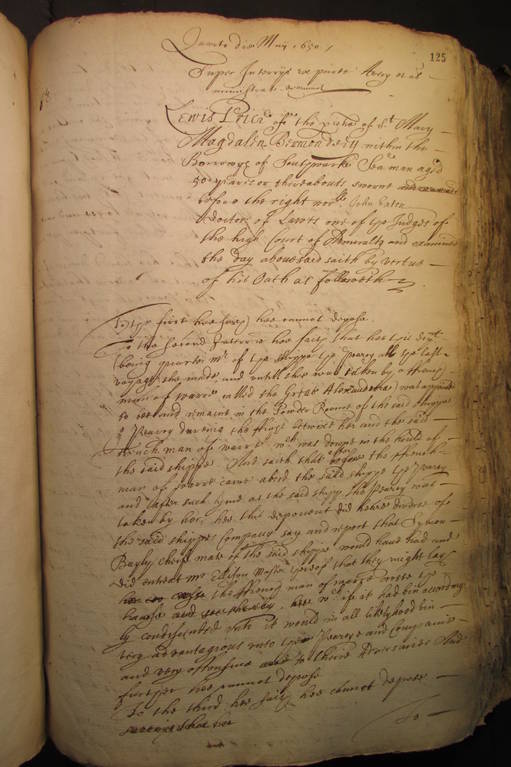 125
Maij 1650
Super Interrys ex parte Avery et al
Lewis Price of the parish of St Mary
Magdalin Bermondsey within the
Borrowgh of Southwarke Seaman aged
50 yeares or thereabouts sworne
before the right worll John Exton
doctor of Lawes one of the Judges of
the high Court of Admiralty and examined
the day abovesaid saith by vertue
of his Oath as followeth
To the first hee saith hee cannot depose.
To the second Interrie hee saith that hee this depnt
being quarter mr of the shippe the Pearle the last
voyage she made, and untill shee was taken by a ffrench
man of warre called the Great Alexander was appointed
to and remaine in the Powder Roome of the said shippe
Pearle during the fight betweene her and the said
ffrench man of warre wch was downe in the hould of
the said shippe And saith that before the ffrench
man of warre came abord the said shippe the Pearle
and after such tyme as the said shipp the Pearle was
taken by her, hee this deponent did heare divers of
the said shippes Company say and report that
Bayly cheife mate of the said shippe would have had and
did entreat mr Master thereof that they might lay
the ffrench man of warre crosse the
hawse wch if it had bin according
ly condiscented unto it would in all likelyhood bin
very advantagious unto the Pearle and Company
and very offensive to theire Adversaries And
further hee cannot depose
To the third hee saith hee cannot depose
To